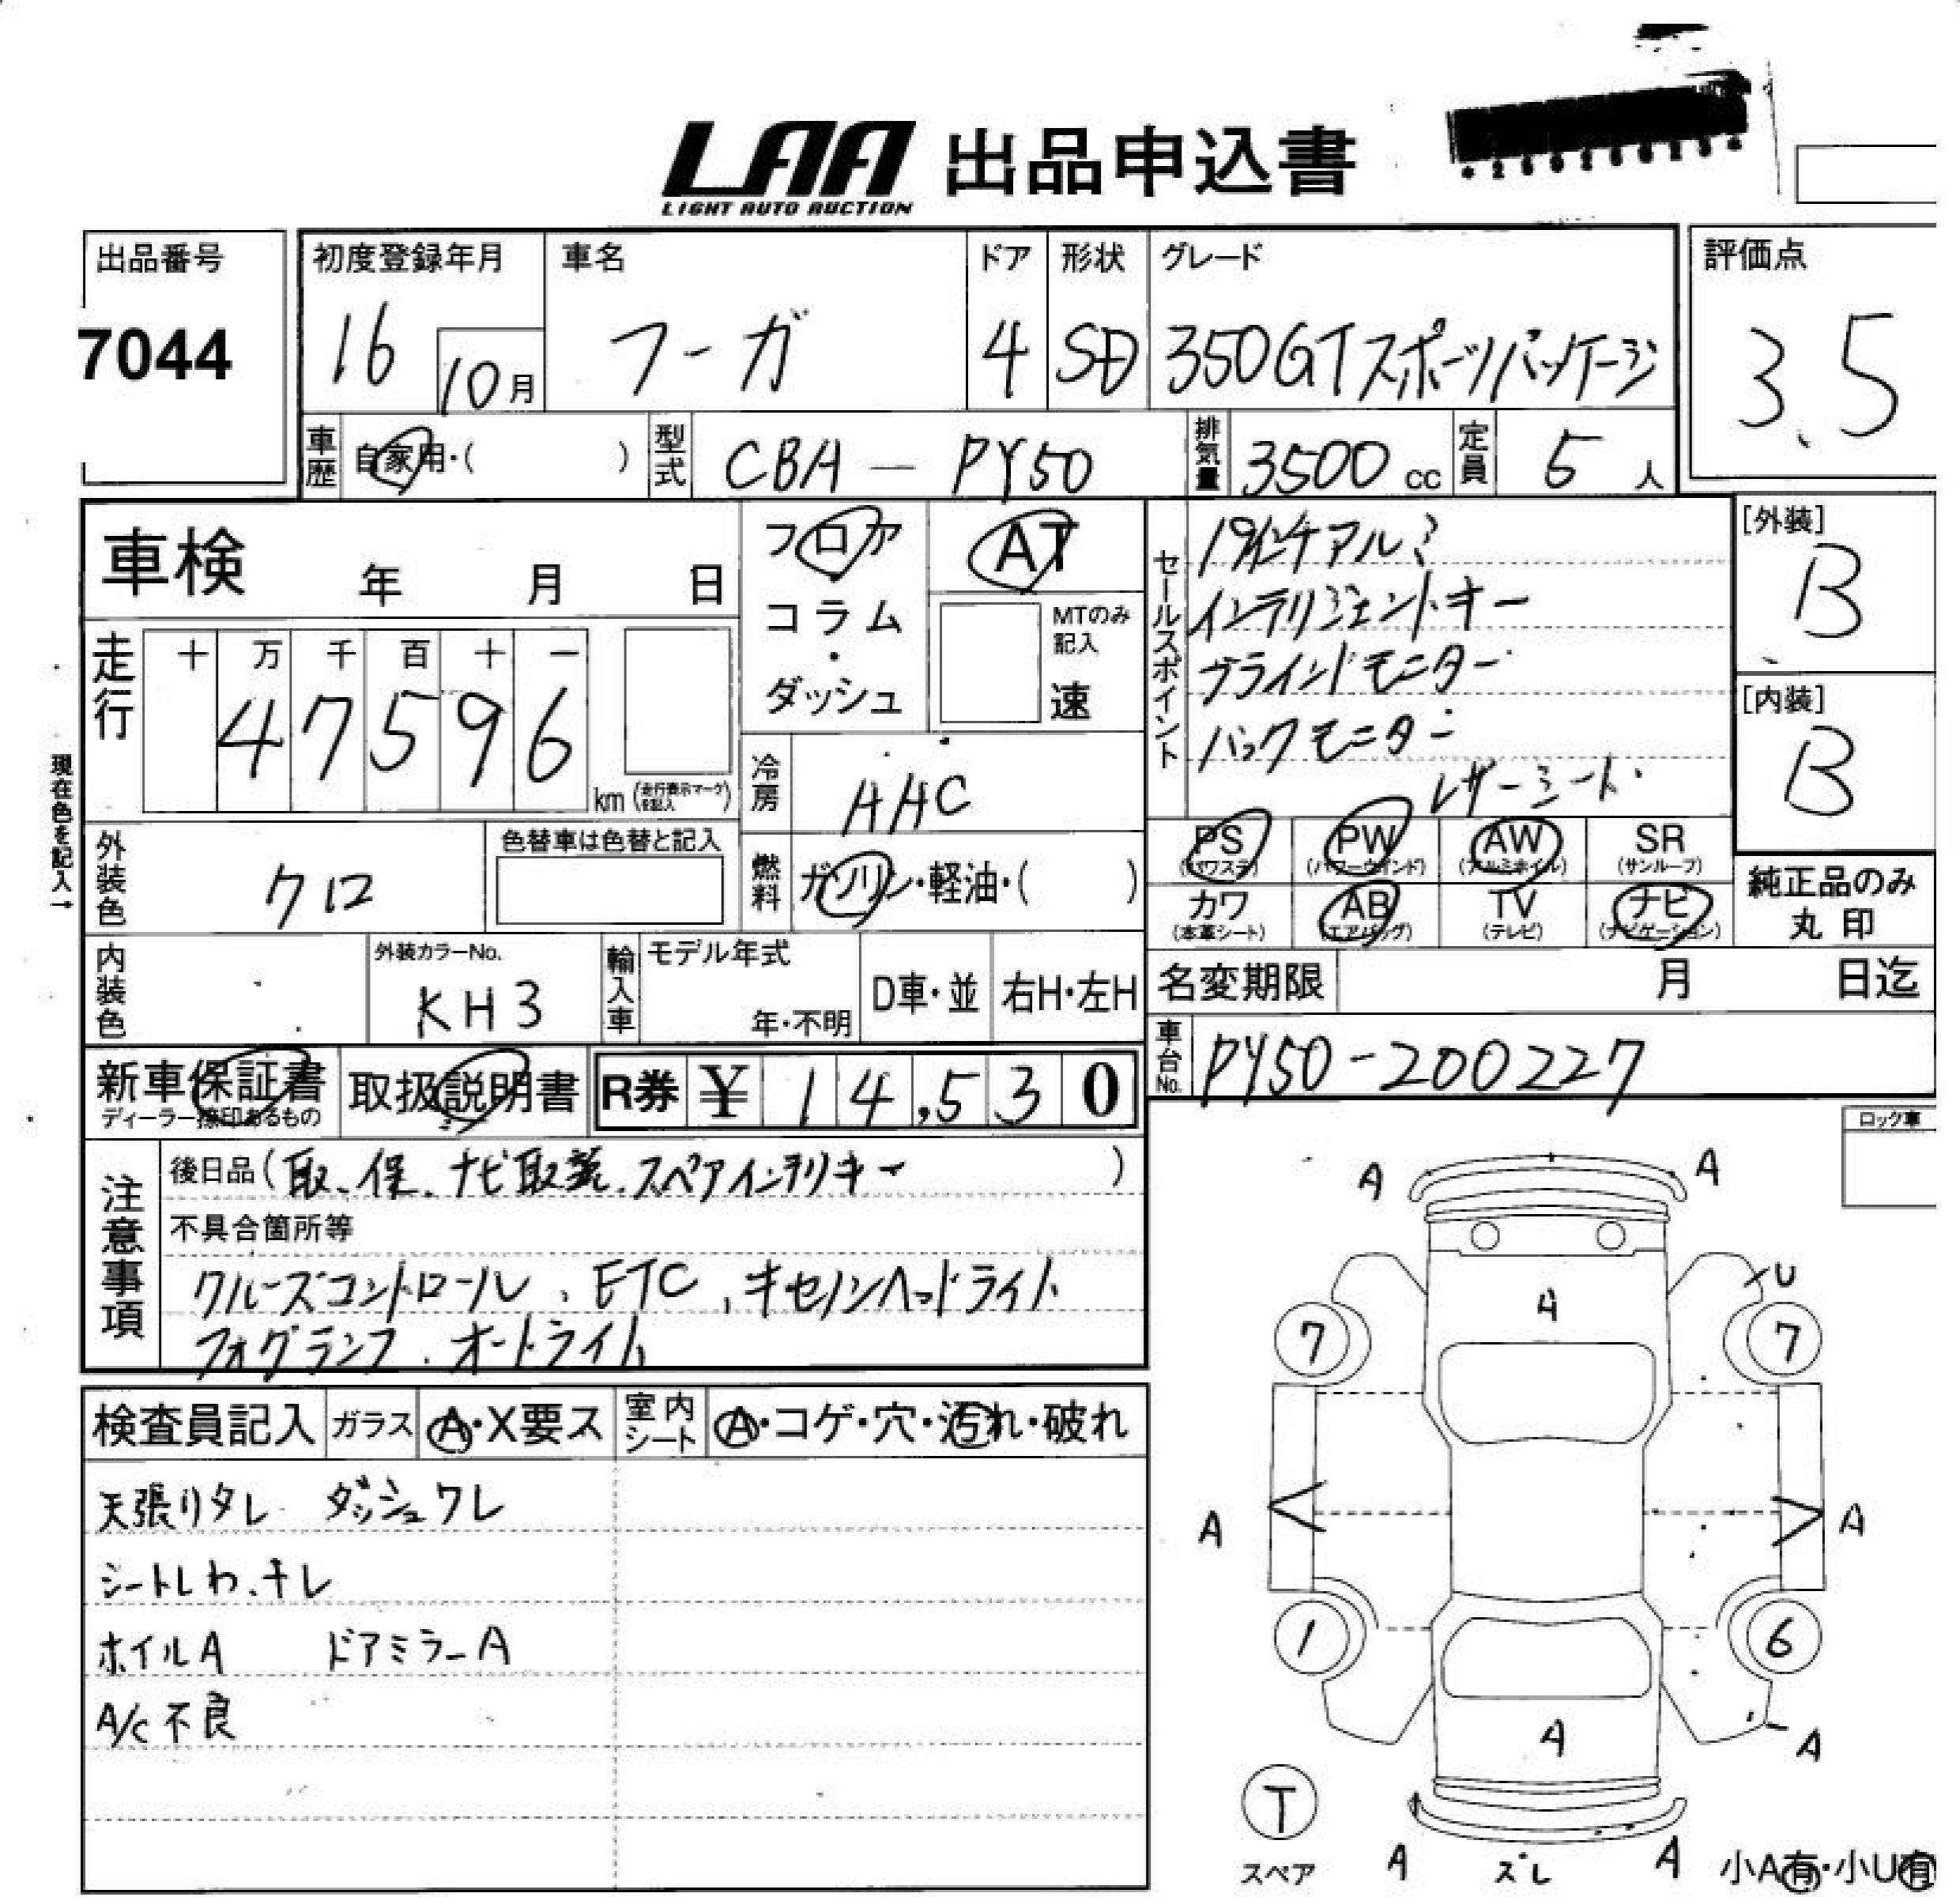 LAA 出品申込書
LIGHT AUTO AUCTION
出品番号
7044
初度登録年月
16
10月
車名
フーガ
ドア
4
形状
SD
グレード
350GTスポーツパッケージ
評価点
3.5
車歴
自家用・( )
型式
CBA — PY50
排気量
3500 cc
定員
5 人
車検 年 月 日
フロア・コラム・ダッシュ
AT
MTのみ記入
速
セールスポイント
19インチアルミ
インテリジェントキー
ブラインドモニター
バックモニター
レザーシート
[外装]
B
[内装]
B
走行
十 万 千 百 十 一
4 7 5 9 6
km (走行表示マークを記入)
現在色を記入→
冷房
AAC
外装色
クロ
色替車は色替と記入
燃料
ガソリン・軽油・( )
PS (パワステ)
PW (パワーウインド)
AW (アルミホイル)
SR (サンルーフ)
カワ (本革シート)
AB (エアバッグ)
TV (テレビ)
ナビ (ナビゲーション)
純正品のみ
丸印
内装色
外装カラーNo.
KH3
輸入車
モデル年式
年・不明
D車・並
右H・左H
名変期限 月 日迄
車台No.
PY50-200227
新車保証書
ディーラー捺印あるもの
取扱説明書
R券 ¥ 14,530
ロック車
注意事項
後日品(取、保、ナビ取説、スペアインテリキー )
不具合箇所等
クルーズコントロール、ETC、キセノンヘッドライト
フォグランプ、オートライト
検査員記入
ガラス
A・X要ス
室内シート
A・コゲ・穴・汚れ・破れ
天張りタレ ダッシュワレ
シートしわ、キレ
ホイルA ドアミラーA
A/C不良
A A
U
A
7 7
A A
1 6
A
A
T
スペア
A ズレ A
小A有・小U有